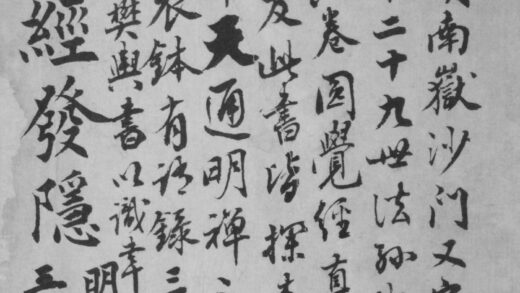 南嶽沙門又
二十九世法孫
卷圓覺經直
及此書皆探
天通明禪
衣鉢有語錄三
樊輿書以識
明
經發隱